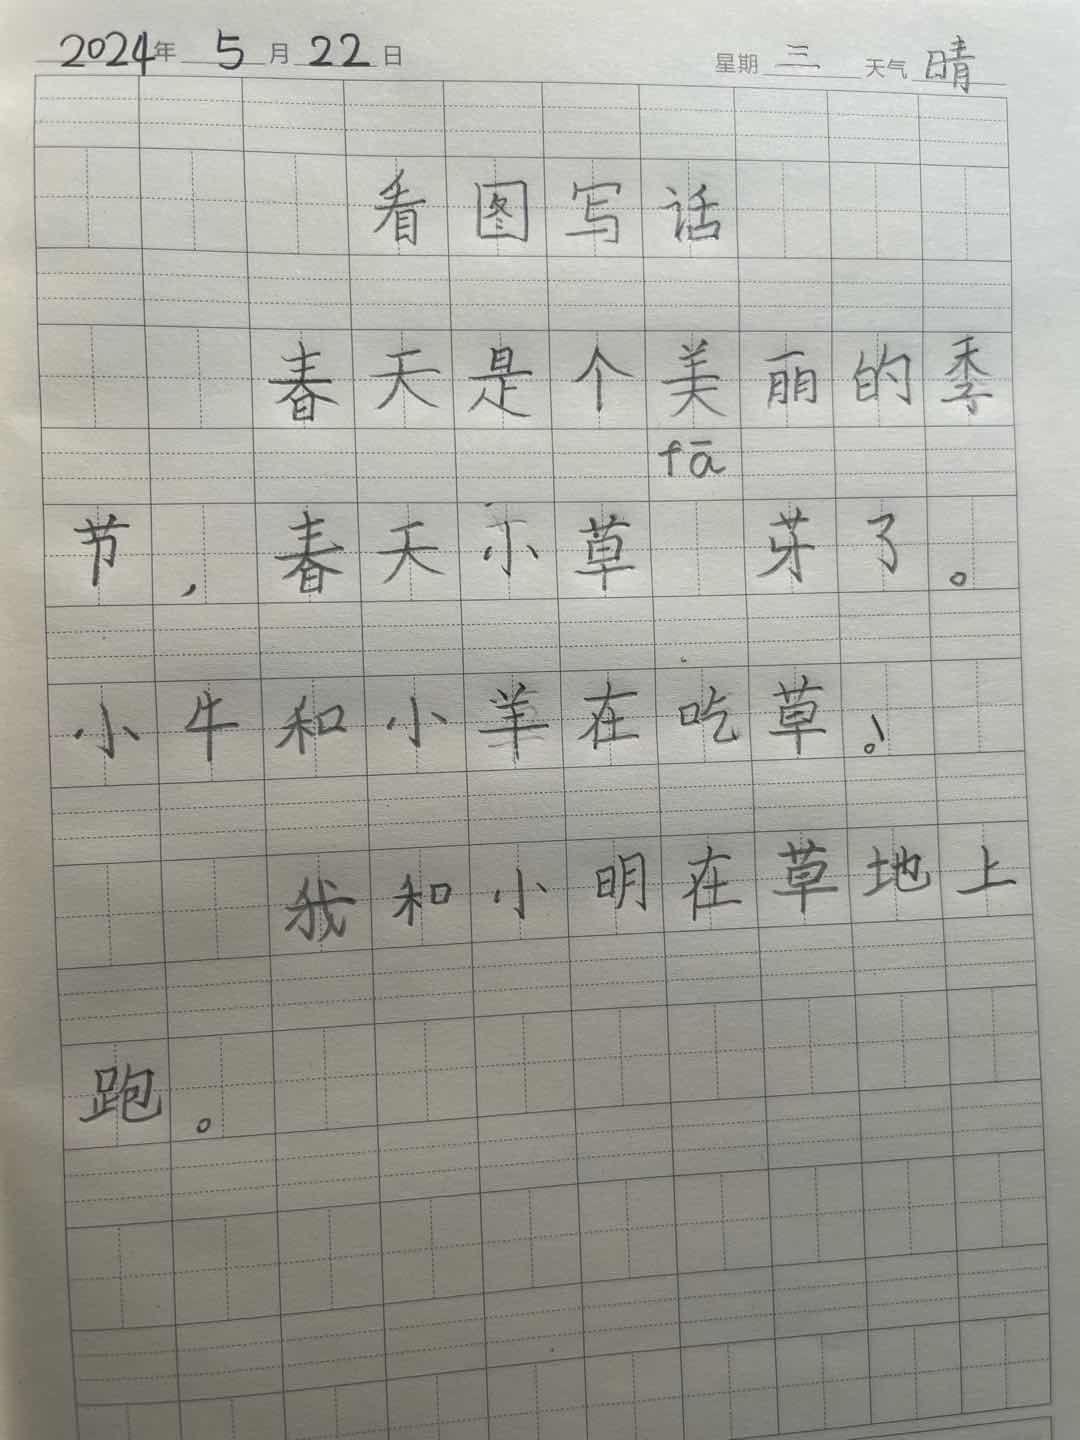 2024年 5月22日 星期三 天气晴
看图写话
春天是个美丽的季
fā
节，春天小草 芽了。
小牛和小羊在吃草。
我和小明在草地上
跑。